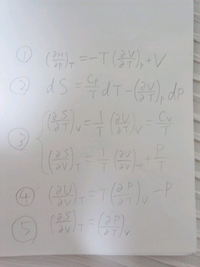 ① (∂H/∂P)_T = -T(∂V/∂T)_P + V
② dS = C_P/T dT - (∂V/∂T)_P dP
③ (∂S/∂T)_V = 1/T (∂U/∂T)_V = C_V/T
(∂S/∂V)_T = 1/T (∂U/∂V)_T + P/T
④ (∂U/∂V)_T = T(∂P/∂T)_V - P
⑤ (∂S/∂V)_T = (∂P/∂T)_V